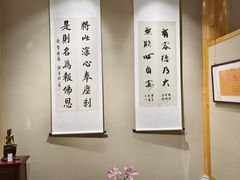 有容德乃大
無欺心自安
將此深心奉塵刹
是則名為報佛恩